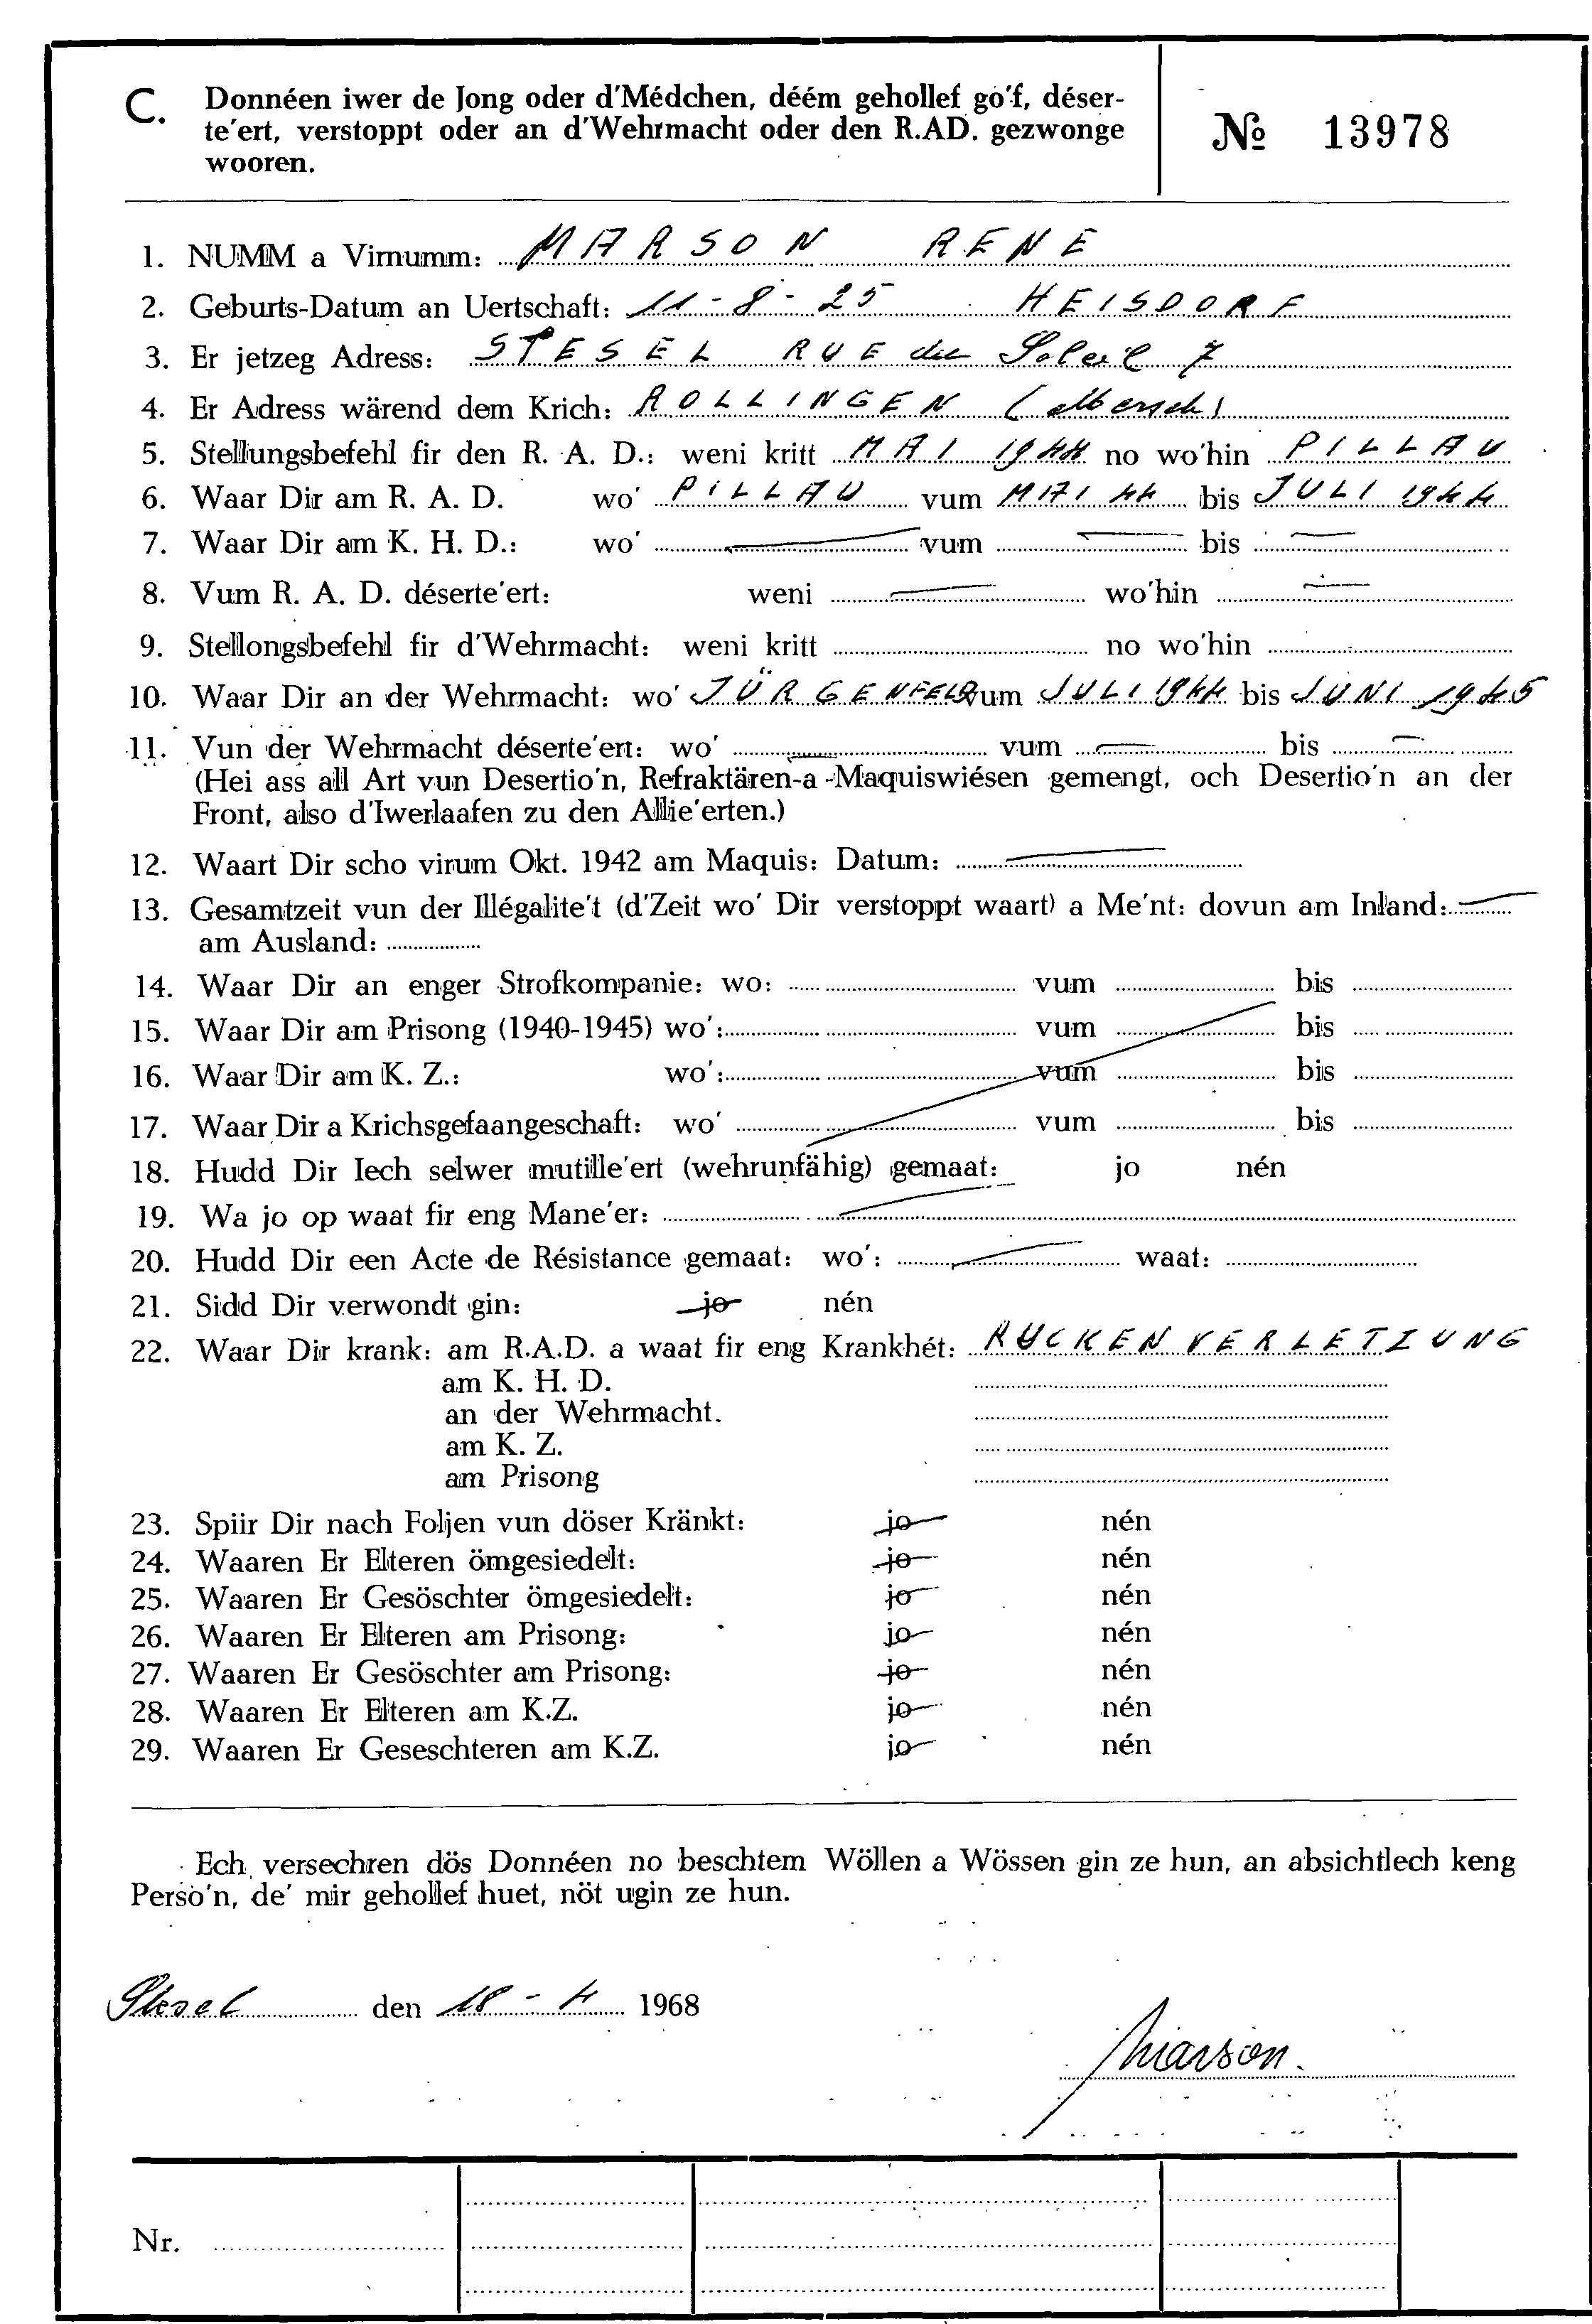 C. Donnéen iwer de Jong oder d'Médchen, déém gehollef go'f, déser-
te'ert, verstoppt oder an d'Wehrmacht oder den R.AD. gezwonge
wooren.
№ 13978
1. NUMM a Virnumm: MARSON RENE
2. Geburts-Datum an Uertschaft: 11-8-25 HEISDORF
3. Er jetzeg Adress: STESEL RUE du Soleil 7
4. Er Adress wärend dem Krich: ROLLINGEN
5. Stellungsbefehl fir den R. A. D.: weni kritt MAI 1944 no wo'hin PILLAU
6. Waar Dir am R. A. D. wo' PILLAU vum MAI 44 bis JULI 1944
7. Waar Dir am K. H. D.: wo' vum bis
8. Vum R. A. D. déserte'ert: weni wo'hin
9. Stellongsbefehl fir d'Wehrmacht: weni kritt no wo'hin
10. Waar Dir an der Wehrmacht: wo' JÜRGENFELD vum JULI 1944 bis JUNI 1945
11. Vun der Wehrmacht déserte'ert: wo' vum bis
(Hei ass all Art vun Desertio'n, Refraktären-a-Maquiswiésen gemengt, och Desertio'n an der
Front, also d'Iwerlaafen zu den Allie'erten.)
12. Waart Dir scho virum Okt. 1942 am Maquis: Datum:
13. Gesamtzeit vun der Illégalite't (d'Zeit wo' Dir verstoppt waart) a Me'nt: dovun am Inland:
am Ausland:
14. Waar Dir an enger Strofkompanie: wo: vum bis
15. Waar Dir am Prisong (1940-1945) wo': vum bis
16. Waar Dir am K. Z.: wo': vum bis
17. Waar Dir a Krichsgefaangeschaft: wo' vum bis
18. Hudd Dir Iech selwer mutille'ert (wehrunfähig) gemaat: jo nén
19. Wa jo op waat fir eng Mane'er:
20. Hudd Dir een Acte de Résistance gemaat: wo': waat:
21. Sidd Dir verwondt gin: jo nén
22. Waar Dir krank: am R.A.D. a waat fir eng Krankhét: RUCKENVERLETZUNG
am K. H. D.
an der Wehrmacht.
am K. Z.
am Prisong
23. Spiir Dir nach Foljen vun döser Kränkt: jo nén
24. Waaren Er Elteren ömgesiedelt: jo nén
25. Waaren Er Gesöschter ömgesiedelt: jo nén
26. Waaren Er Elteren am Prisong: jo nén
27. Waaren Er Gesöschter am Prisong: jo nén
28. Waaren Er Elteren am K.Z. jo nén
29. Waaren Er Geseschteren am K.Z. jo nén
Ech versechren dös Donnéen no beschtem Wöllen a Wössen gin ze hun, an absichtlech keng
Perso'n, de' mir gehollef huet, nöt ugin ze hun.
Stesel den 18-4 1968
Marson
Nr.